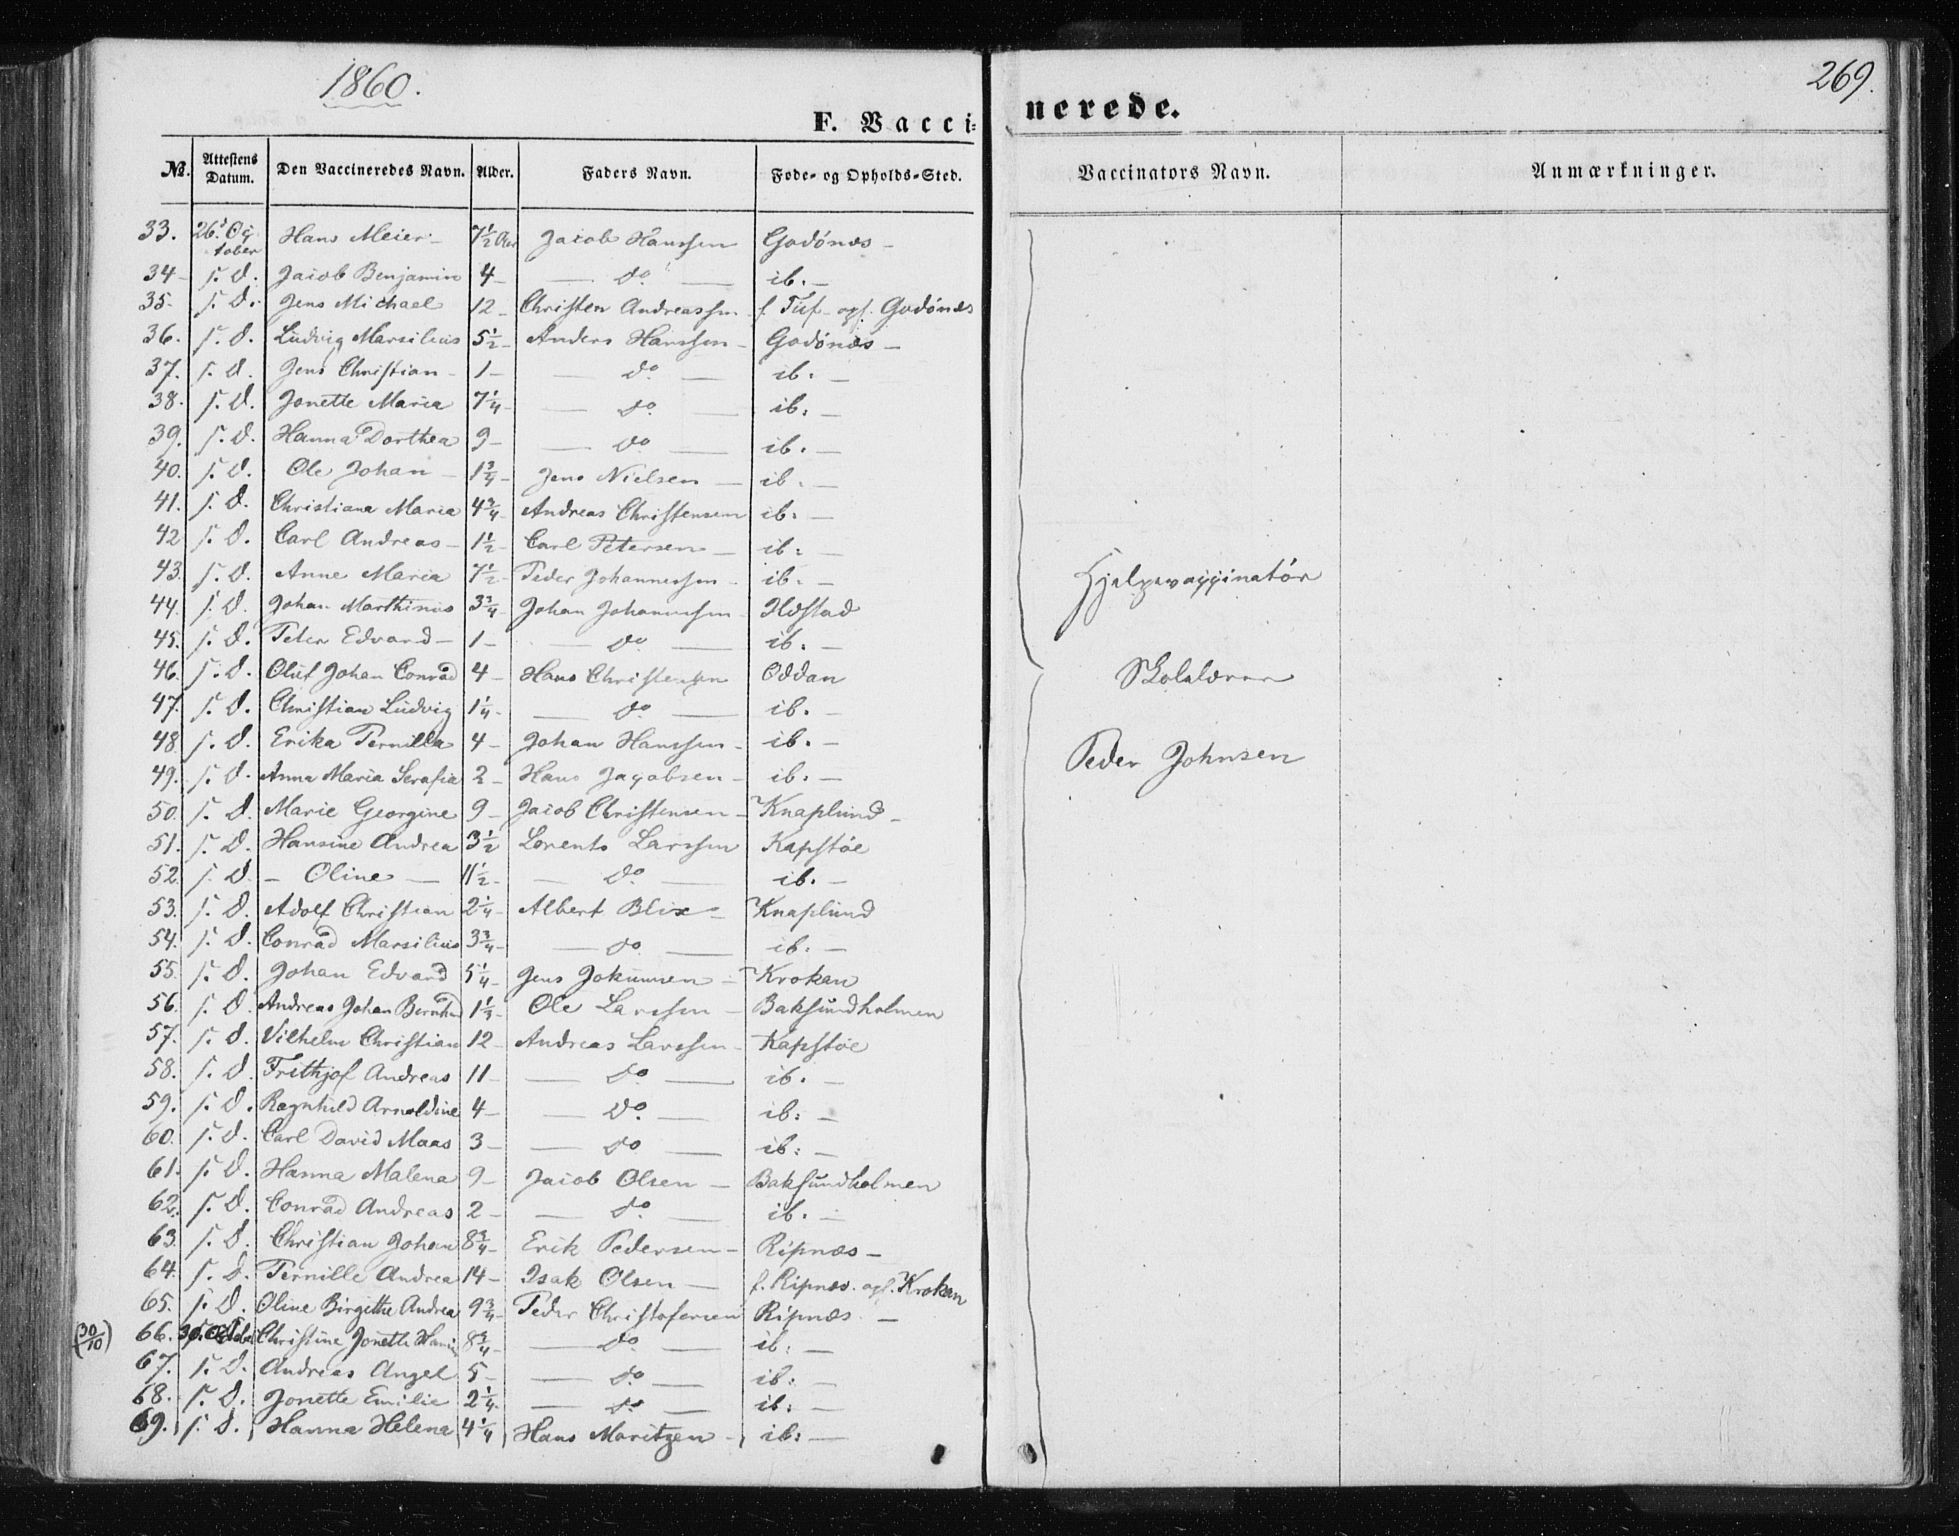 1860.
269.
F. Vacci-
nerede.
No. Attestens Datum. Den Vaccineredes Navn. Alder. Faders Navn. Føde- og Opholds-Sted. Vaccinators Navn. Anmærkninger.
33. 26. October Hans Meier 7½ Jacob Hanssen Godönæs
34 s. d. Jacob Benjamin 4 do ib.
35 s. d. Jens Michael 12 Christen Andreassen f. Tuf opf. Godönæs
36. s. d. Ludvig Marsilius 5½ Anders Hanssen Godönæs
37. s. d. Jens Christian 1 do ib.
38. s. d. Jonette Maria 7¼ do ib.
39. s. d. Hanna Dorthea 9 do ib.
40. s. d. Ole Johan 1¾ Jens Nielsen ib.
41. s. d. Christiana Maria 4¾ Andreas Christensen ib.
42 s. d. Carl Andreas 1½ Carl Petersen ib.
43. s. d. Anne Maria 7½ Peder Johannessen ib.
44. s. d. Johan Marthinus 3¾ Johan Johannessen Ildstad
45. s. d. Peter Edvard 1 do ib.
46. s. d. Oluf Johan Conrad 4 Hans Christensen Oddan
47. s. d. Christian Ludvig 1¼ do ib.
48 s. d. Erika Pernilla 4 Johan Hanssen ib.
49. s. d. Anna Maria Serafia 2 Hans Jacobsen ib.
50. s. d. Marie Georgine 9 Jacob Christensen Knaplund
51. s. d. Hansine Andrea 3½ Lorents Larssen Kapstöe
52. s. d. Oline 11½ do ib.
53. s. d. Adolf Christian 2¼ Albert Blix Knaplund
54. s. d. Conrad Marsilius 3¾ do ib.
55. s. d. Johan Edvard 5¼ Jens Jokumsen Krokan
56. s. d. Andreas Johan Bernhard Ole Larssen Baksundholmen
57. s. d. Vilhelm Christian 12 Andreas Larssen Kapstöe
58. s. d. Frithjof Andreas 11 do ib.
59. s. d. Ragnhild Arnoldine 4 do ib.
60. s. d. Carl David Maas 3 do ib.
61. s. d. Hanna Malena 9 Jacob Olsen Baksundholmen
62. s. d. Conrad Andreas 2 do ib.
63. s. d. Christian Johan 8¾ Erik Pedersen Ripnæs
64. s. d. Pernille Andrea 14 Isak Olsen f. Ripnæs. opf. Krokan
65. s. d. Oline Birgithe Andrea 9¾ Peder Christofersen Ripnæs
(30/10) 66. 30. October Christine Jonette 8¾ do ib.
67. s. d. Andreas Angel 5 do ib.
68. s. d. Jonette Emilie 2¼ do ib.
69. s. d. Hanna Helena 4¼ Hans Moritzen ib.
Hjelpevaccinatör
Skolelærer
Peder Johnsen